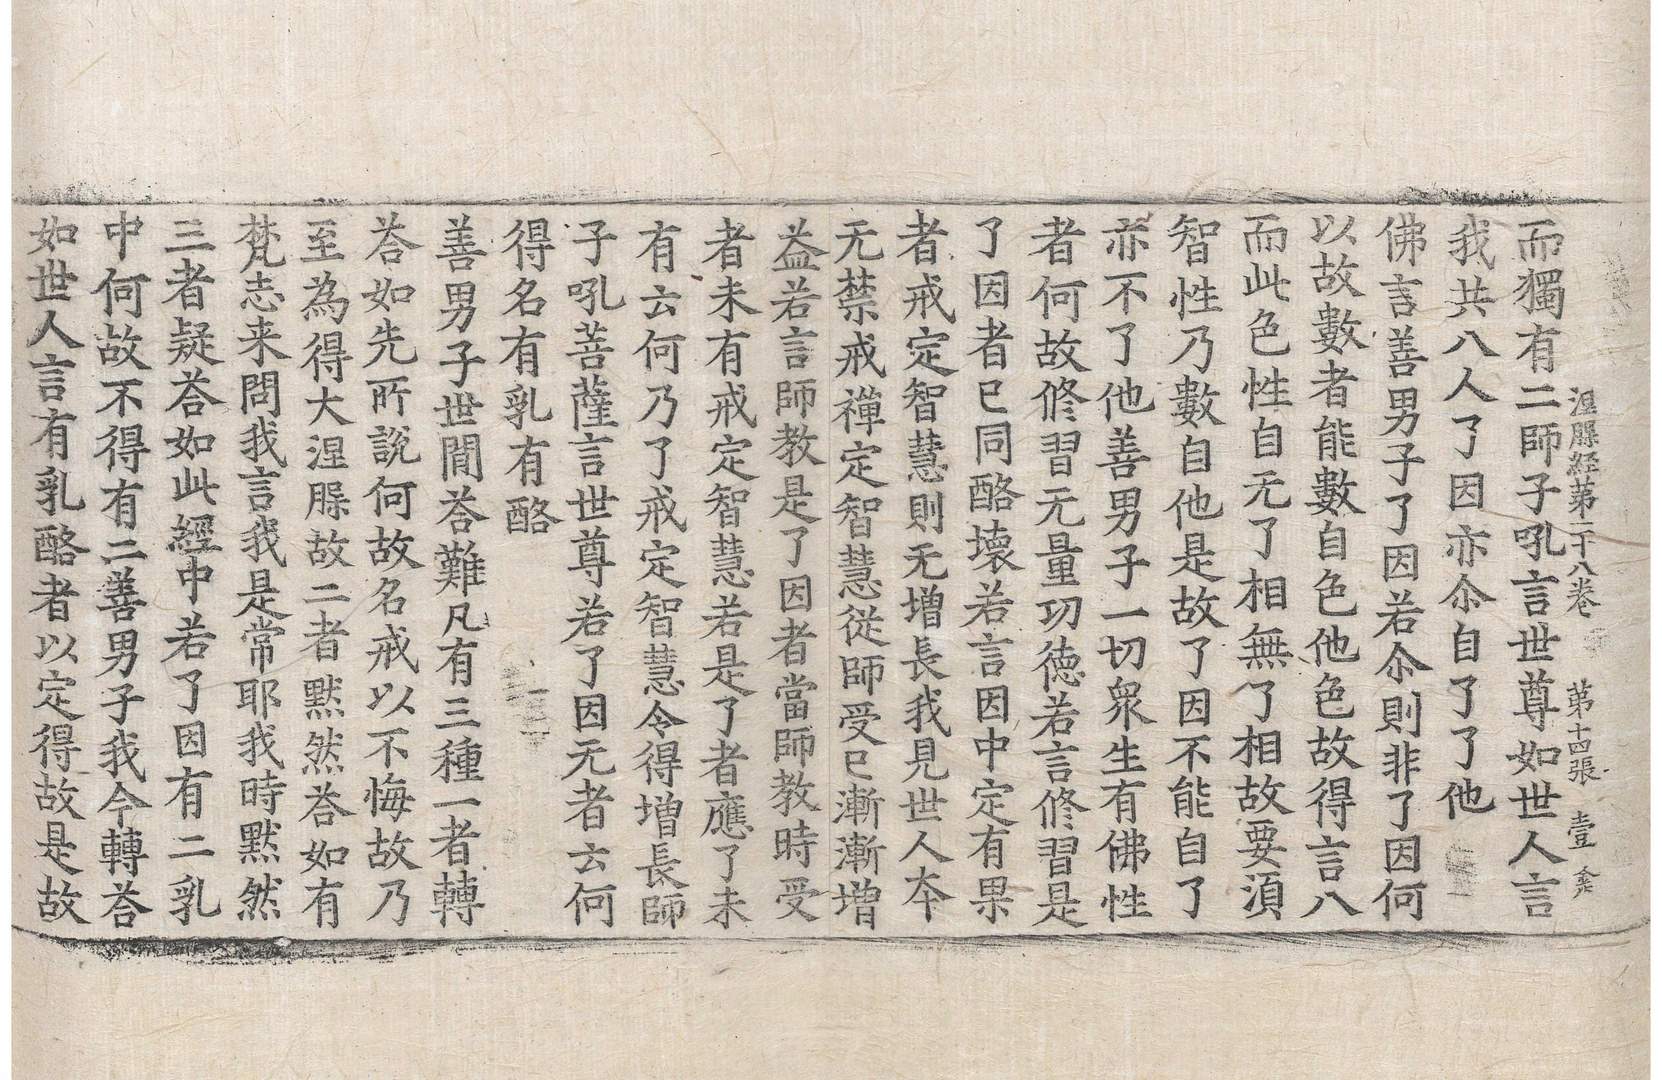 涅槃経第二十八卷 第十四張 壹
而獨有二師子吼言世尊如世人言
我共八人了因亦尒自了了他
佛言善男子了因若尒則非了因何
以故數者能數自色他色故得言八
而此色性自无了相無了相故要湏
智性乃數自他是故了因不能自了
亦不了他善男子一切衆生有佛性
者何故修習无量功徳若言修習是
了因者已同酪壊若言因中定有果
者戒定智慧則无增長我見世人夲
无禁戒禪定智慧従師受已漸漸增
益若言師教是了因者當師教時受
者未有戒定智慧若是了者應了未
有云何乃了戒定智慧令得增長師
子吼菩薩言世尊若了因无者云何
得名有乳有酪
善男子世間荅難凡有三種一者轉
荅如先所說何故名戒以不悔故乃
至為得大涅槃故二者黙然荅如有
梵志来問我言我是常耶我時黙然
三者疑荅如此經中若了因有二乳
中何故不得有二善男子我今轉荅
如世人言有乳酪者以定得故是故